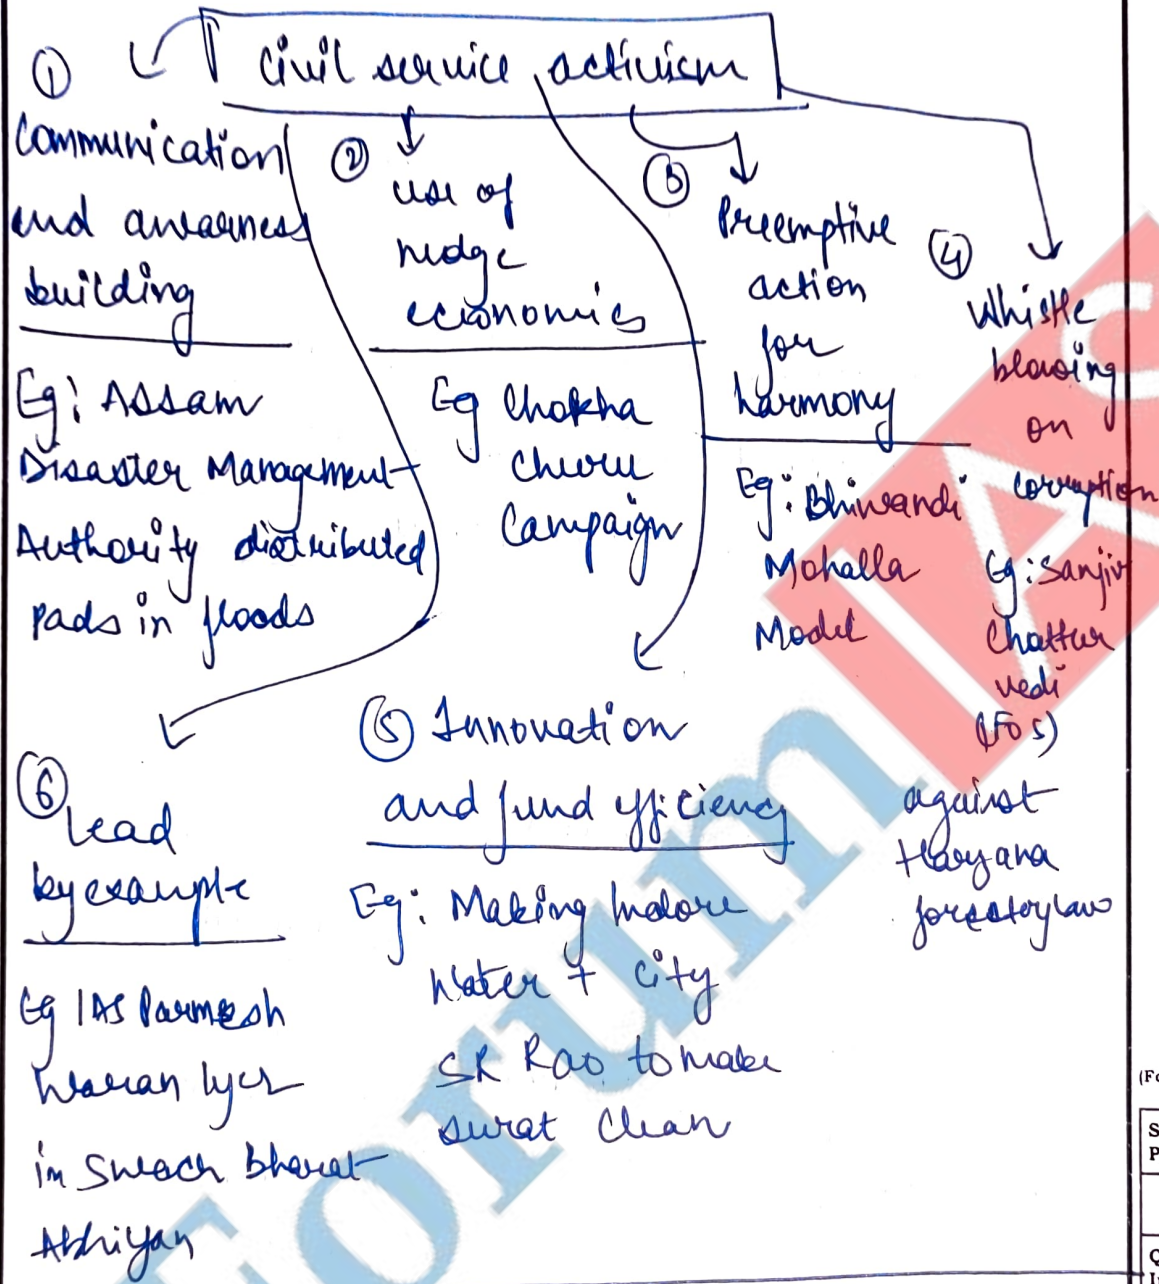 Civil service activism
①
Communication
and awarness
building
Eg: Assam
Disaster Management
Authority distributed
pads in floods
②
use of
nudge
economics
Eg Chokha
Churu
Campaign
③
Preemptive
action
for
harmony
Eg: Bhiwandi
Mohalla
Model
④
Whistle
blowing
on
corruption
Eg: Sanjiv
Chattur
vedi
(IFoS)
against
Haryana
forestry law
⑤ Innovation
and fund efficiency
Eg: Making Indore
Water + City
SR Rao to make
Surat Clean
⑥
Lead
by example
Eg IAS Parmesh
waran Iyer
in Swach Bharat
Abhiyan
Forum IAS
(Fo
S
P